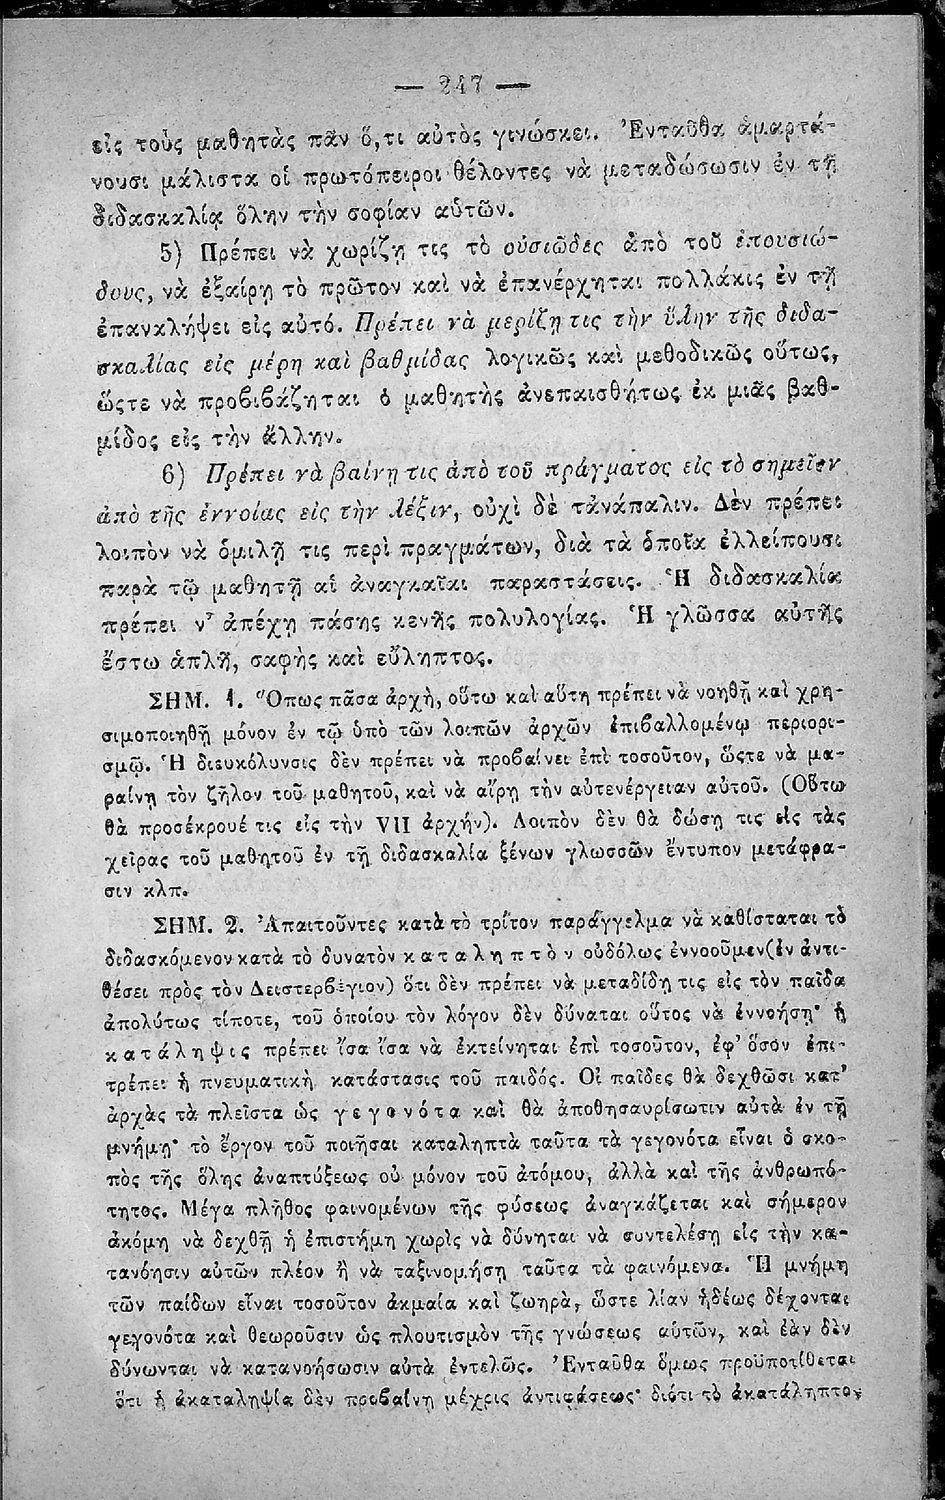 — 247 —
εἰς τοὺς μαθητὰς πᾶν ὅ,τι αὐτὸς γινώσκει. Ἐνταῦθα ἁμαρτά-
νουσι μάλιστα οἱ πρωτόπειροι θέλοντες νὰ μεταδώσωσιν ἐν τῇ
διδασκαλίᾳ ὅλην τὴν σοφίαν αὑτῶν.
5) Πρέπει νὰ χωρίζῃ τις τὸ οὐσιῶδες ἀπὸ τοῦ ἐπουσιώ-
δους, νὰ ἐξαίρῃ τὸ πρῶτον καὶ νὰ ἐπανέρχηται πολλάκις ἐν τῇ
ἐπαναλήψει εἰς αὐτό. Πρέπει νὰ μερίζῃ τις τὴν ὕλην τῆς διδα-
σκαλίας εἰς μέρη καὶ βαθμίδας λογικῶς καὶ μεθοδικῶς οὕτως,
ὥστε νὰ προβιβάζηται ὁ μαθητὴς ἀνεπαισθήτως ἐκ μιᾶς βαθ-
μίδος εἰς τὴν ἄλλην.
6) Πρέπει νὰ βαίνῃ τις ἀπὸ τοῦ πράγματος εἰς τὸ σημεῖον
ἀπὸ τῆς ἐννοίας εἰς τὴν λέξιν, οὐχὶ δὲ τἀνάπαλιν. Δὲν πρέπει
λοιπὸν νὰ ὁμιλῇ τις περὶ πραγμάτων, διὰ τὰ ὁποῖα ἐλλείπουσι
παρὰ τῷ μαθητῇ αἱ ἀναγκαῖαι παραστάσεις. Ἡ διδασκαλία
πρέπει ν' ἀπέχῃ πάσης κενῆς πολυλογίας. Ἡ γλῶσσα αὐτῆς
ἔστω ἁπλῆ, σαφὴς καὶ εὔληπτος.
ΣΗΜ. 1. Ὅπως πᾶσα ἀρχὴ, οὕτω καὶ αὕτη πρέπει νὰ νοηθῇ καὶ χρη-
σιμοποιηθῇ μόνον ἐν τῷ ὑπὸ τῶν λοιπῶν ἀρχῶν ἐπιβαλλομένῳ περιορι-
σμῷ. Ἡ διευκόλυνσις δὲν πρέπει νὰ προβαίνει ἐπὶ τοσοῦτον, ὥστε νὰ μα-
ραίνῃ τὸν ζῆλον τοῦ μαθητοῦ, καὶ νὰ αἴρῃ τὴν αὐτενέργειαν αὐτοῦ. (Οὕτω
θὰ προσέκρουέ τις εἰς τὴν VII ἀρχήν). Λοιπὸν δὲν θὰ δώσῃ τις εἰς τὰς
χεῖρας τοῦ μαθητοῦ ἐν τῇ διδασκαλίᾳ ξένων γλωσσῶν ἔντυπον μετάφρα-
σιν κλπ.
ΣΗΜ. 2. Ἀπαιτοῦντες κατὰ τὸ τρίτον παράγγελμα νὰ καθίσταται τὸ
διδασκόμενον κατὰ τὸ δυνατὸν καταληπτὸν οὐδόλως ἐννοοῦμεν (ἐν ἀντι-
θέσει πρὸς τὸν Δειστερβέγιον) ὅτι δὲν πρέπει νὰ μεταδίδῃ τις εἰς τὸν παῖδα
ἀπολύτως τίποτε, τοῦ ὁποίου τὸν λόγον δὲν δύναται οὗτος νὰ ἐννοήσῃ· ἡ
κατάληψις πρέπει ἴσα ἴσα νὰ ἐκτείνηται ἐπὶ τοσοῦτον, ἐφ' ὅσον ἐπι-
τρέπει ἡ πνευματικὴ κατάστασις τοῦ παιδός. Οἱ παῖδες θὰ δεχθῶσι κατ'
ἀρχὰς τὰ πλεῖστα ὡς γεγονότα καὶ θὰ ἀποθησαυρίσωσιν αὐτὰ ἐν τῇ
μνήμῃ· τὸ ἔργον τοῦ ποιῆσαι καταληπτὰ ταῦτα τὰ γεγονότα εἶναι ὁ σκο-
πὸς τῆς ὅλης ἀναπτύξεως οὐ μόνον τοῦ ἀτόμου, ἀλλὰ καὶ τῆς ἀνθρωπό-
τητος. Μέγα πλῆθος φαινομένων τῆς φύσεως ἀναγκάζεται καὶ σήμερον
ἀκόμη νὰ δεχθῇ ἡ ἐπιστήμη χωρὶς νὰ δύνηται νὰ συντελέσῃ εἰς τὴν κα-
τανόησιν αὐτῶν πλέον ἢ νὰ ταξινομήσῃ ταῦτα τὰ φαινόμενα. Ἡ μνήμη
τῶν παίδων εἶναι τοσοῦτον ἀκμαία καὶ ζωηρὰ, ὥστε λίαν ἡδέως δέχονται
γεγονότα καὶ θεωροῦσιν ὡς πλουτισμὸν τῆς γνώσεως αὑτῶν, καὶ ἐὰν δὲν
δύνωνται νὰ κατανοήσωσιν αὐτὰ ἐντελῶς. Ἐνταῦθα ὅμως προϋποτίθεται
ὅτι ἡ ἀκαταληψία δὲν προβαίνῃ μέχρις ἀντιφάσεως· διότι τὸ ἀκατάληπτον